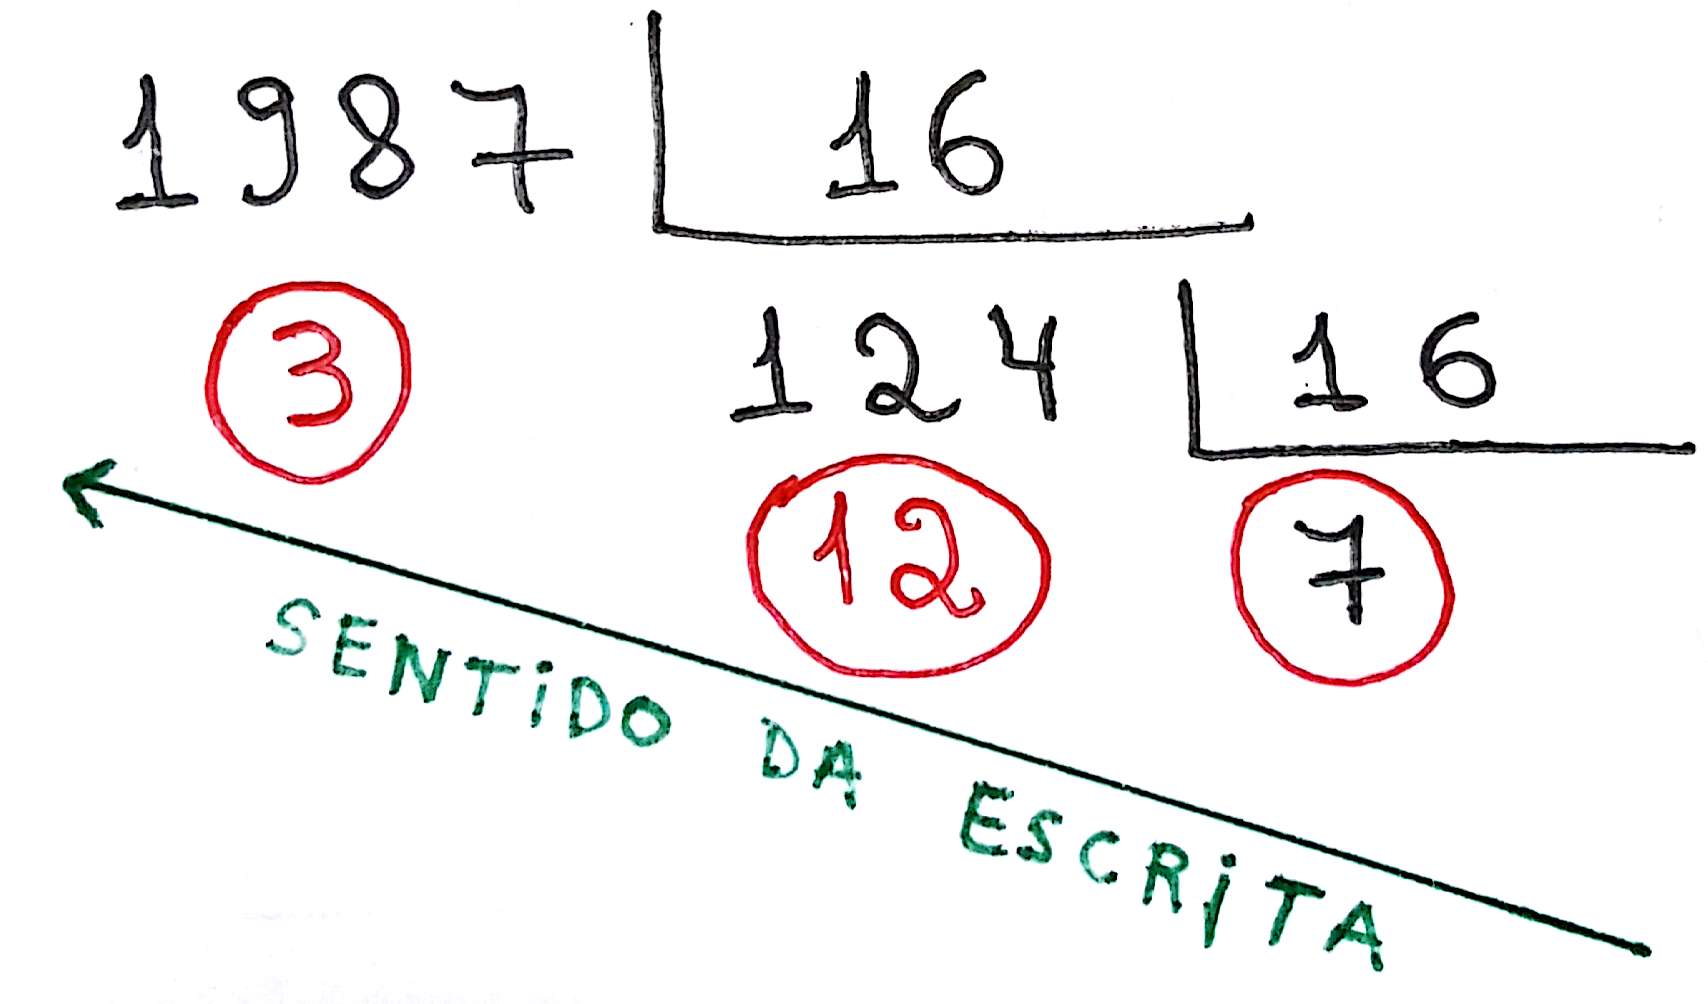 1987 16
3 124 16
12 7
SENTIDO DA ESCRITA